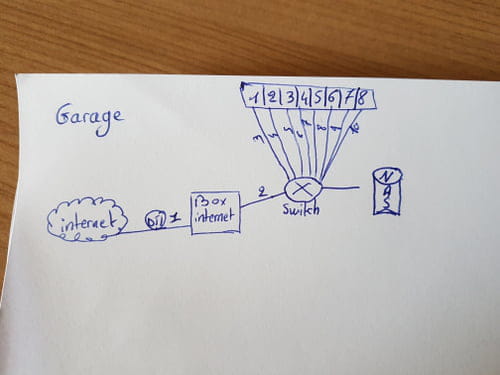 Garage
1|2|3|4|5|6|7|8
internet
1
Box
internet
2
Switch
N
A
S